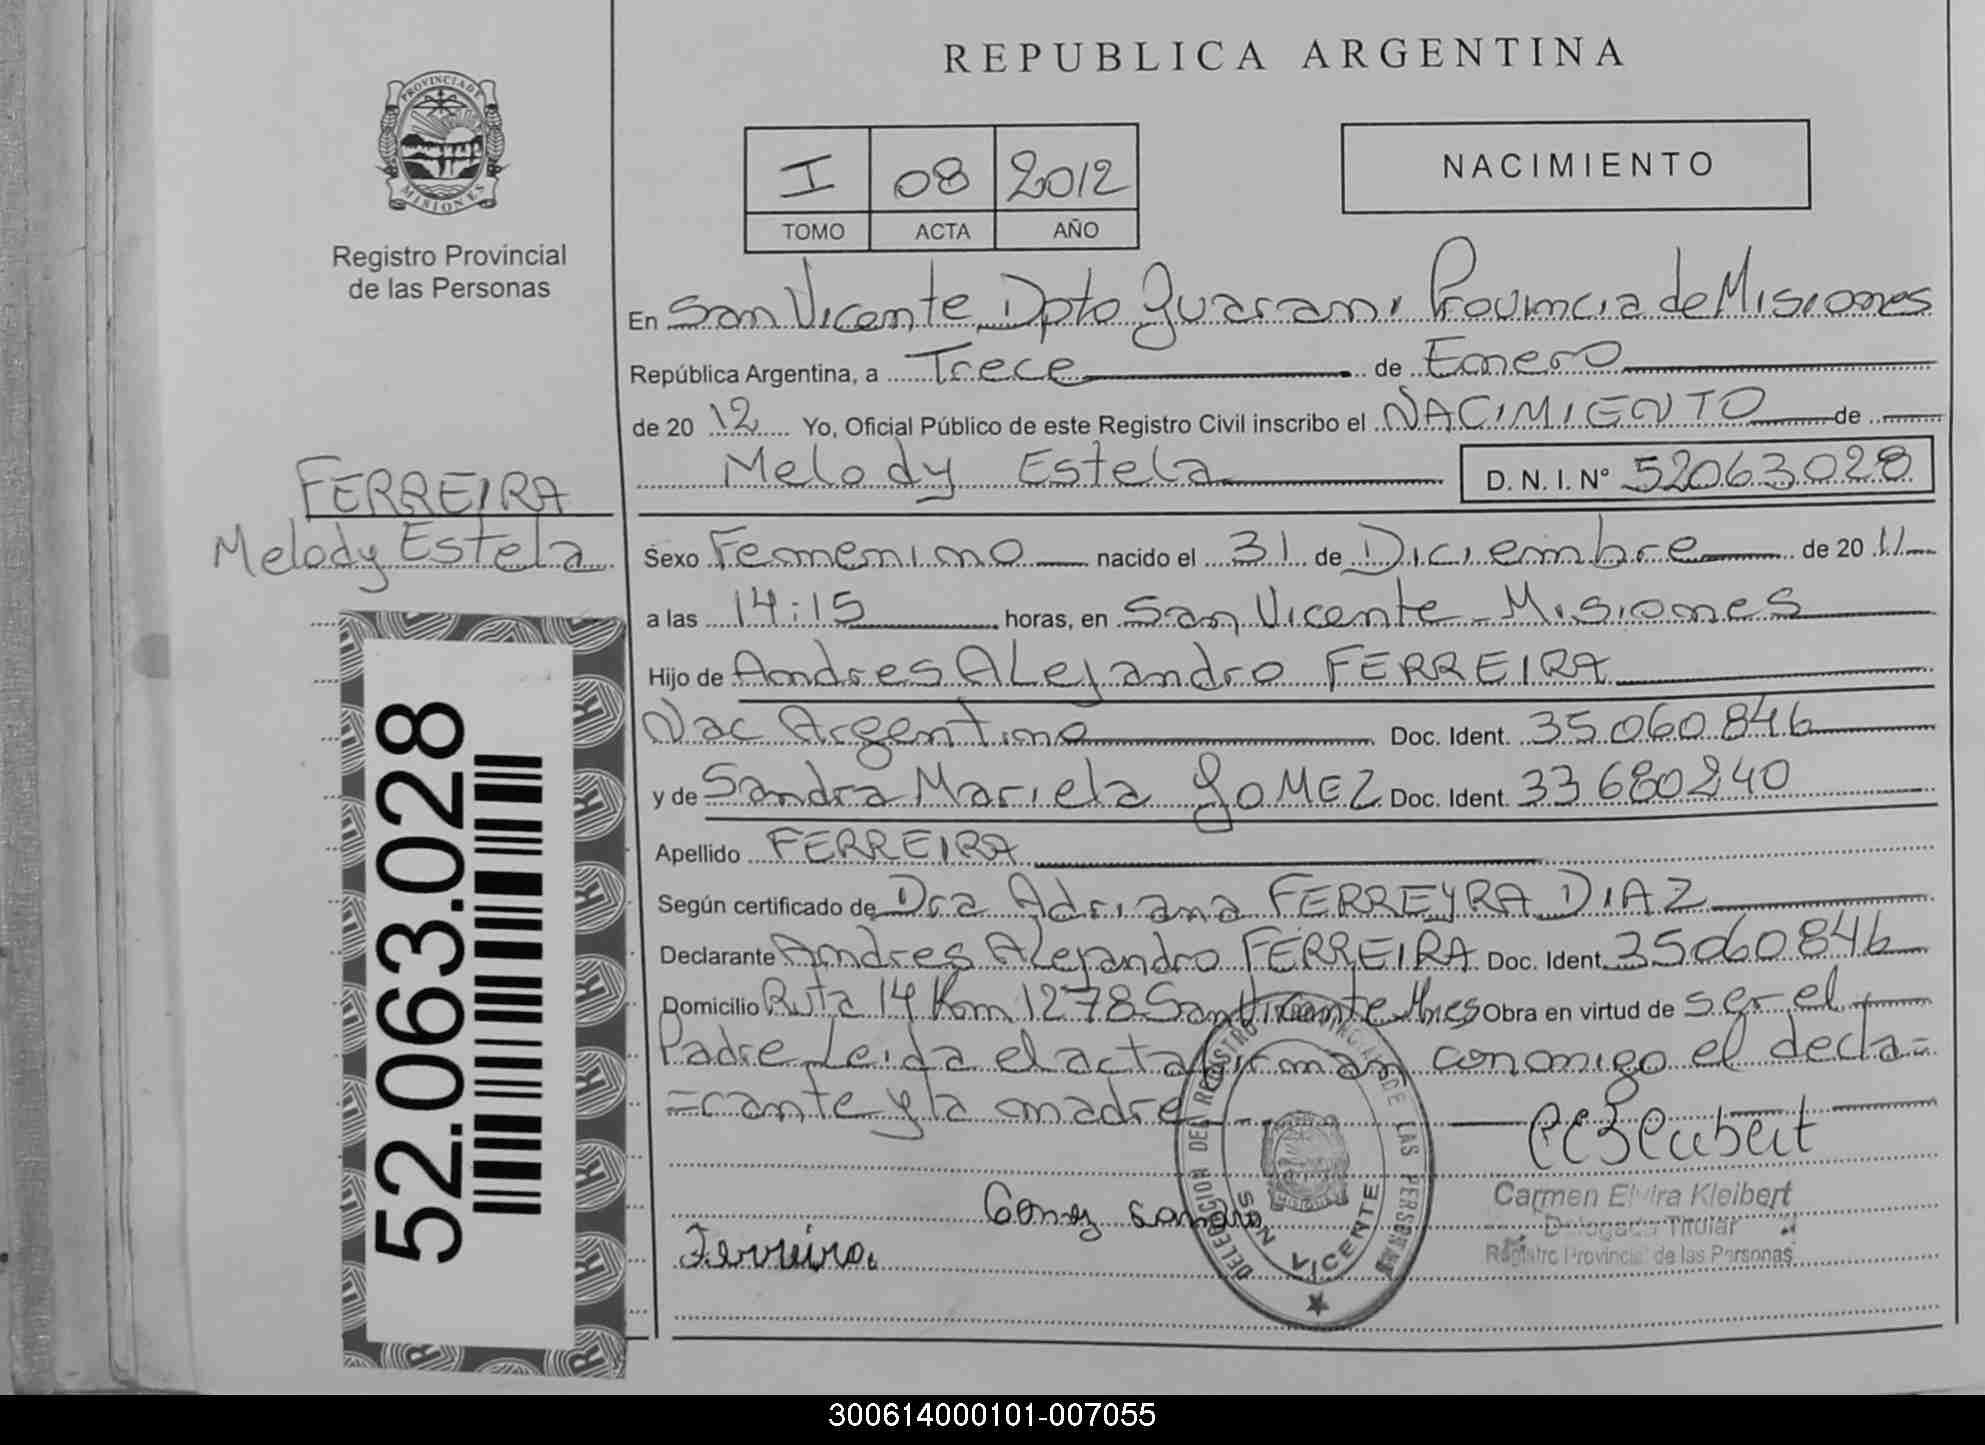 REPUBLICA ARGENTINA
PROVINCIA DE
MISIONES
Registro Provincial
de las Personas
I 08 2012
TOMO ACTA AÑO
NACIMIENTO
En San Vicente Dpto Guarani Provincia de Misiones
República Argentina, a Trece de Enero
de 20 12 Yo, Oficial Público de este Registro Civil inscribo el NACIMIENTO de
Melody Estela D. N. I. Nº 52063028
FERREIRA
Melody Estela
52.063.028
Sexo Femenino nacido el 31 de Diciembre de 20 11
a las 14:15 horas, en San Vicente - Misiones
Hijo de Andres ALejandro FERREIRA
Nac Argentino Doc. Ident. 35060846
y de Sandra Mariela GOMEZ Doc. Ident. 33680240
Apellido FERREIRA
Según certificado de Dra Adriana FERREYRA DIAZ
Declarante Andres ALejandro FERREIRA Doc. Ident. 35060846
Domicilio Ruta 14 Km 1278 San Vicente Mnes Obra en virtud de ser el
Padre Leida el acta firman conmigo el decla=
=rante y la madre
Gomez Sandra
Ferreira
DELEGACION DEL REGISTRO PROVINCIAL DE LAS PERSONAS
SAN VICENTE
Carmen Elvira Kleibert
Delegada Titular
Registro Provincial de las Personas
300614000101-007055